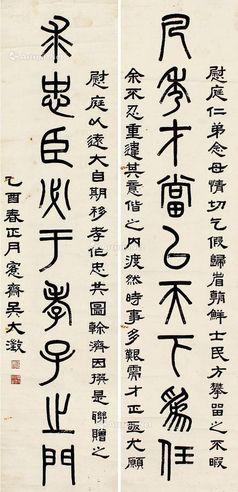 慰庭仁弟念母情切乞假歸省朝鮮士民方攀留之不暇
凡秀才當㠯天下爲任
余不忍重違其意偕之内渡然時事多艱需才正亟尤願
慰庭以遠大自期移孝作忠共圖幹濟因撰是聯贈之
求忠臣必于孝子之門
乙酉春正月愙齋吳大澂